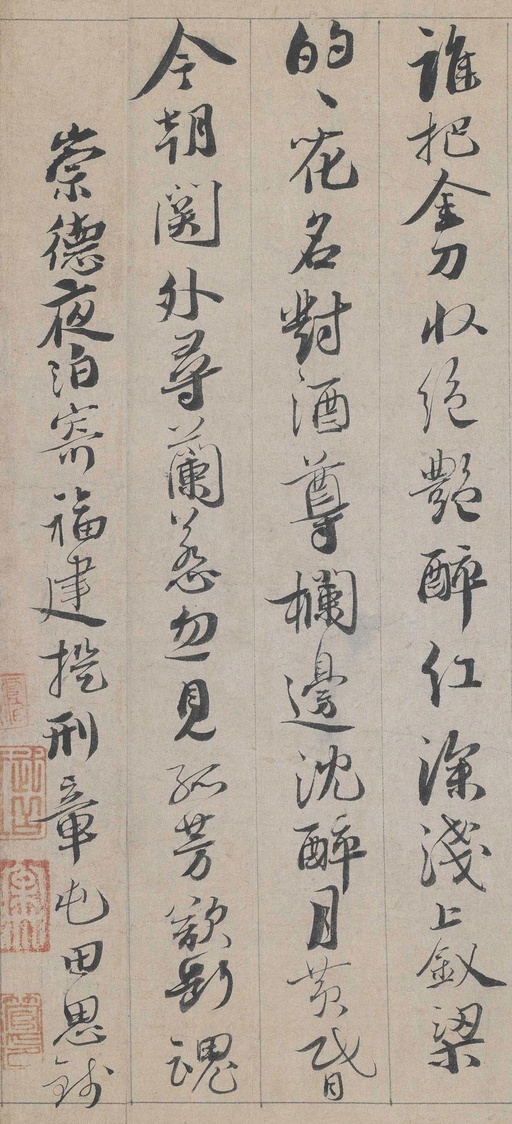 誰把金刀收絕艷醉紅深淺上釵梁
的〻花名對酒尊欄邊沈醉月黃昏
今朝關外尋蘭蕊忽見孤芳欲斷魂
崇德夜泊寄福建提刑章屯田思錢